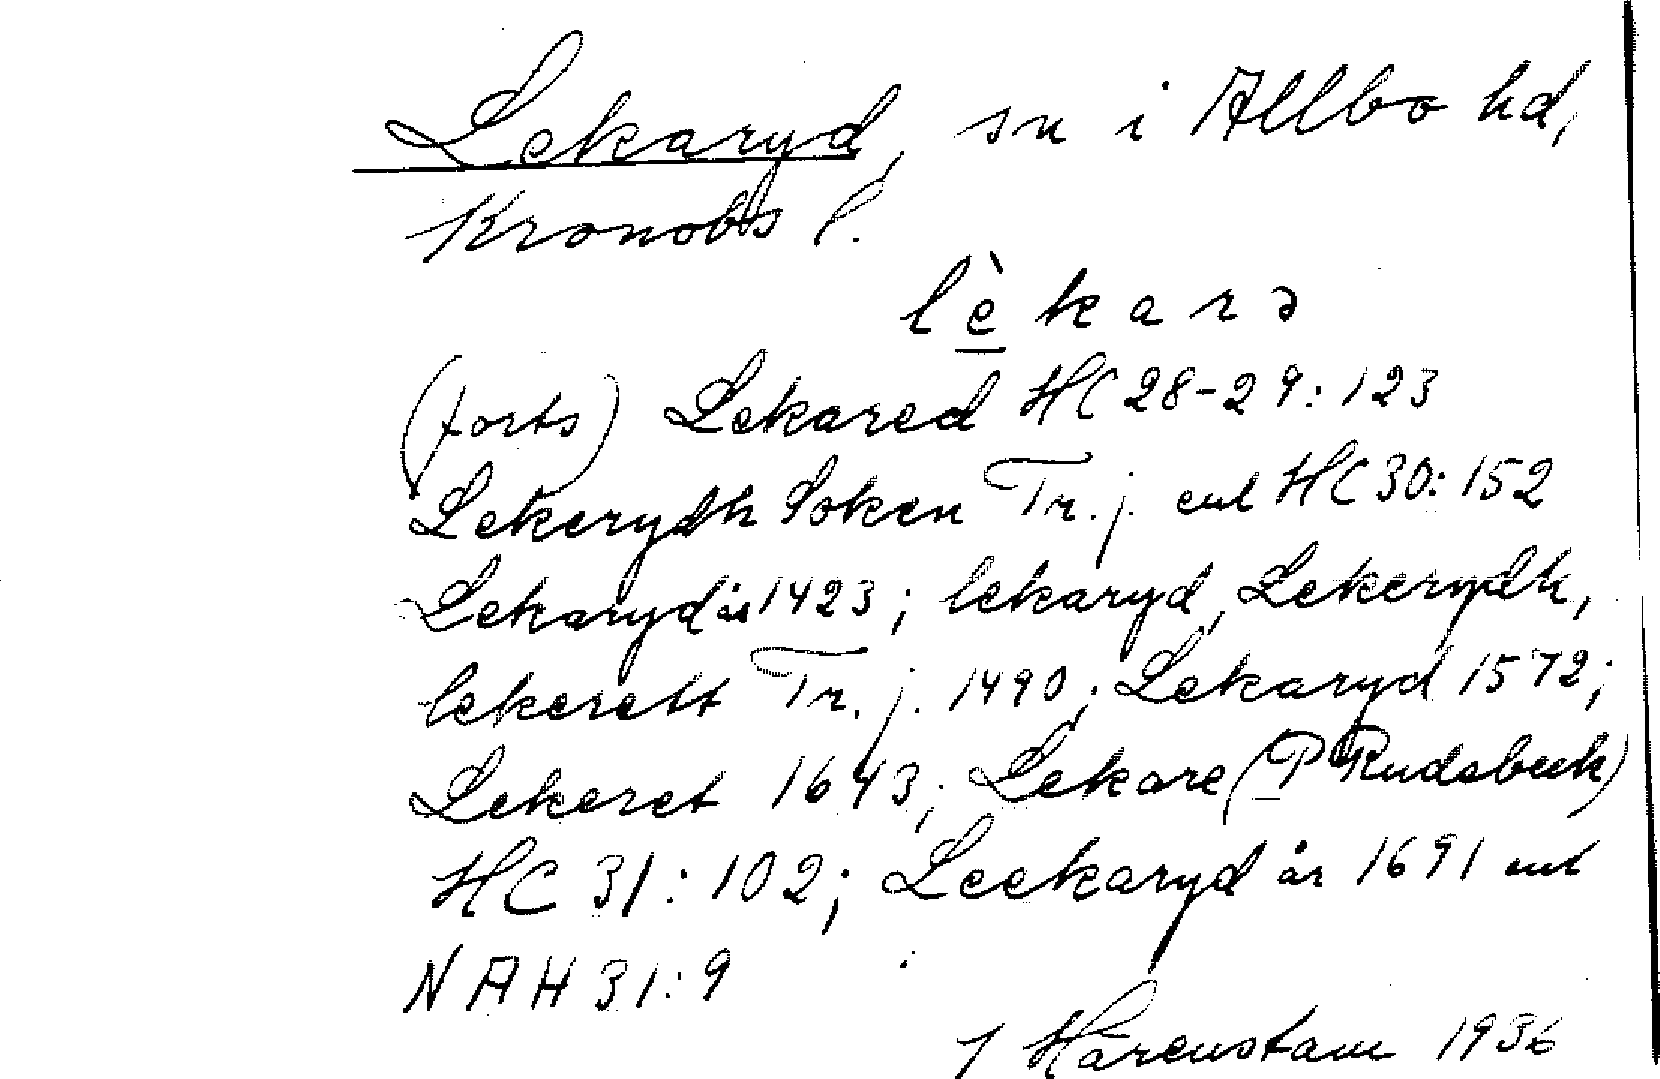 Lekaryd, sn i Allbo hd,
Kronobs l.
lèkarə
(forts) Lekared HC 28-29:123
Lekerydh Soken Tr. j. enl HC 30:152
Lekaryd år 1423; lekaryd, Lekerydh,
lekerett Tr. j. 1490; Lekaryd 1572;
Lekeret 1643; Lekare (P Rudebeck)
HC 31:102; Leekaryd år 1691 enl
NAH 31:9
J Hårenstam 1936